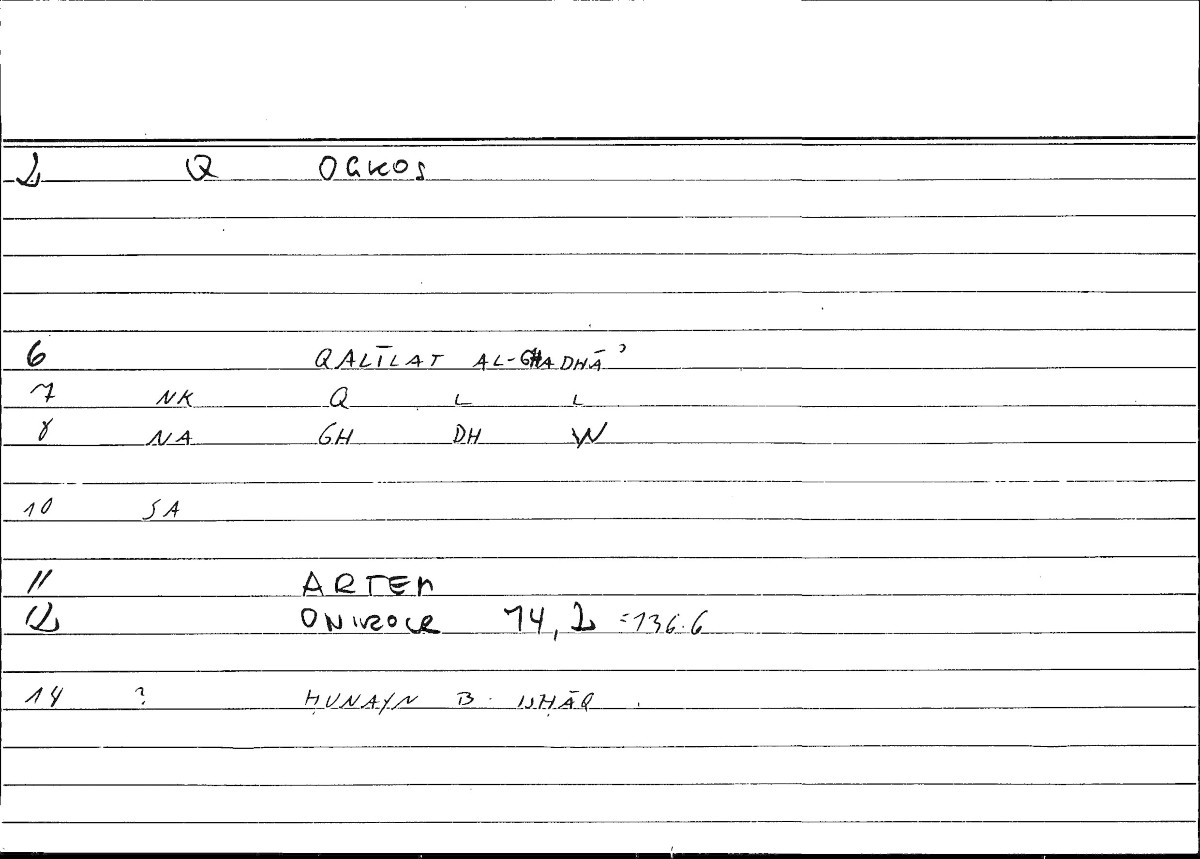 2 Q OGKOS
6 QALĪLAT AL-GHADHĀʾ
7 NK Q L L
8 NA GH DH W
10 SA
11 ARTEM
12 ONIROCR 14, 2 =136.6
14 ? ḤUNAYN B. ISḤĀQ.